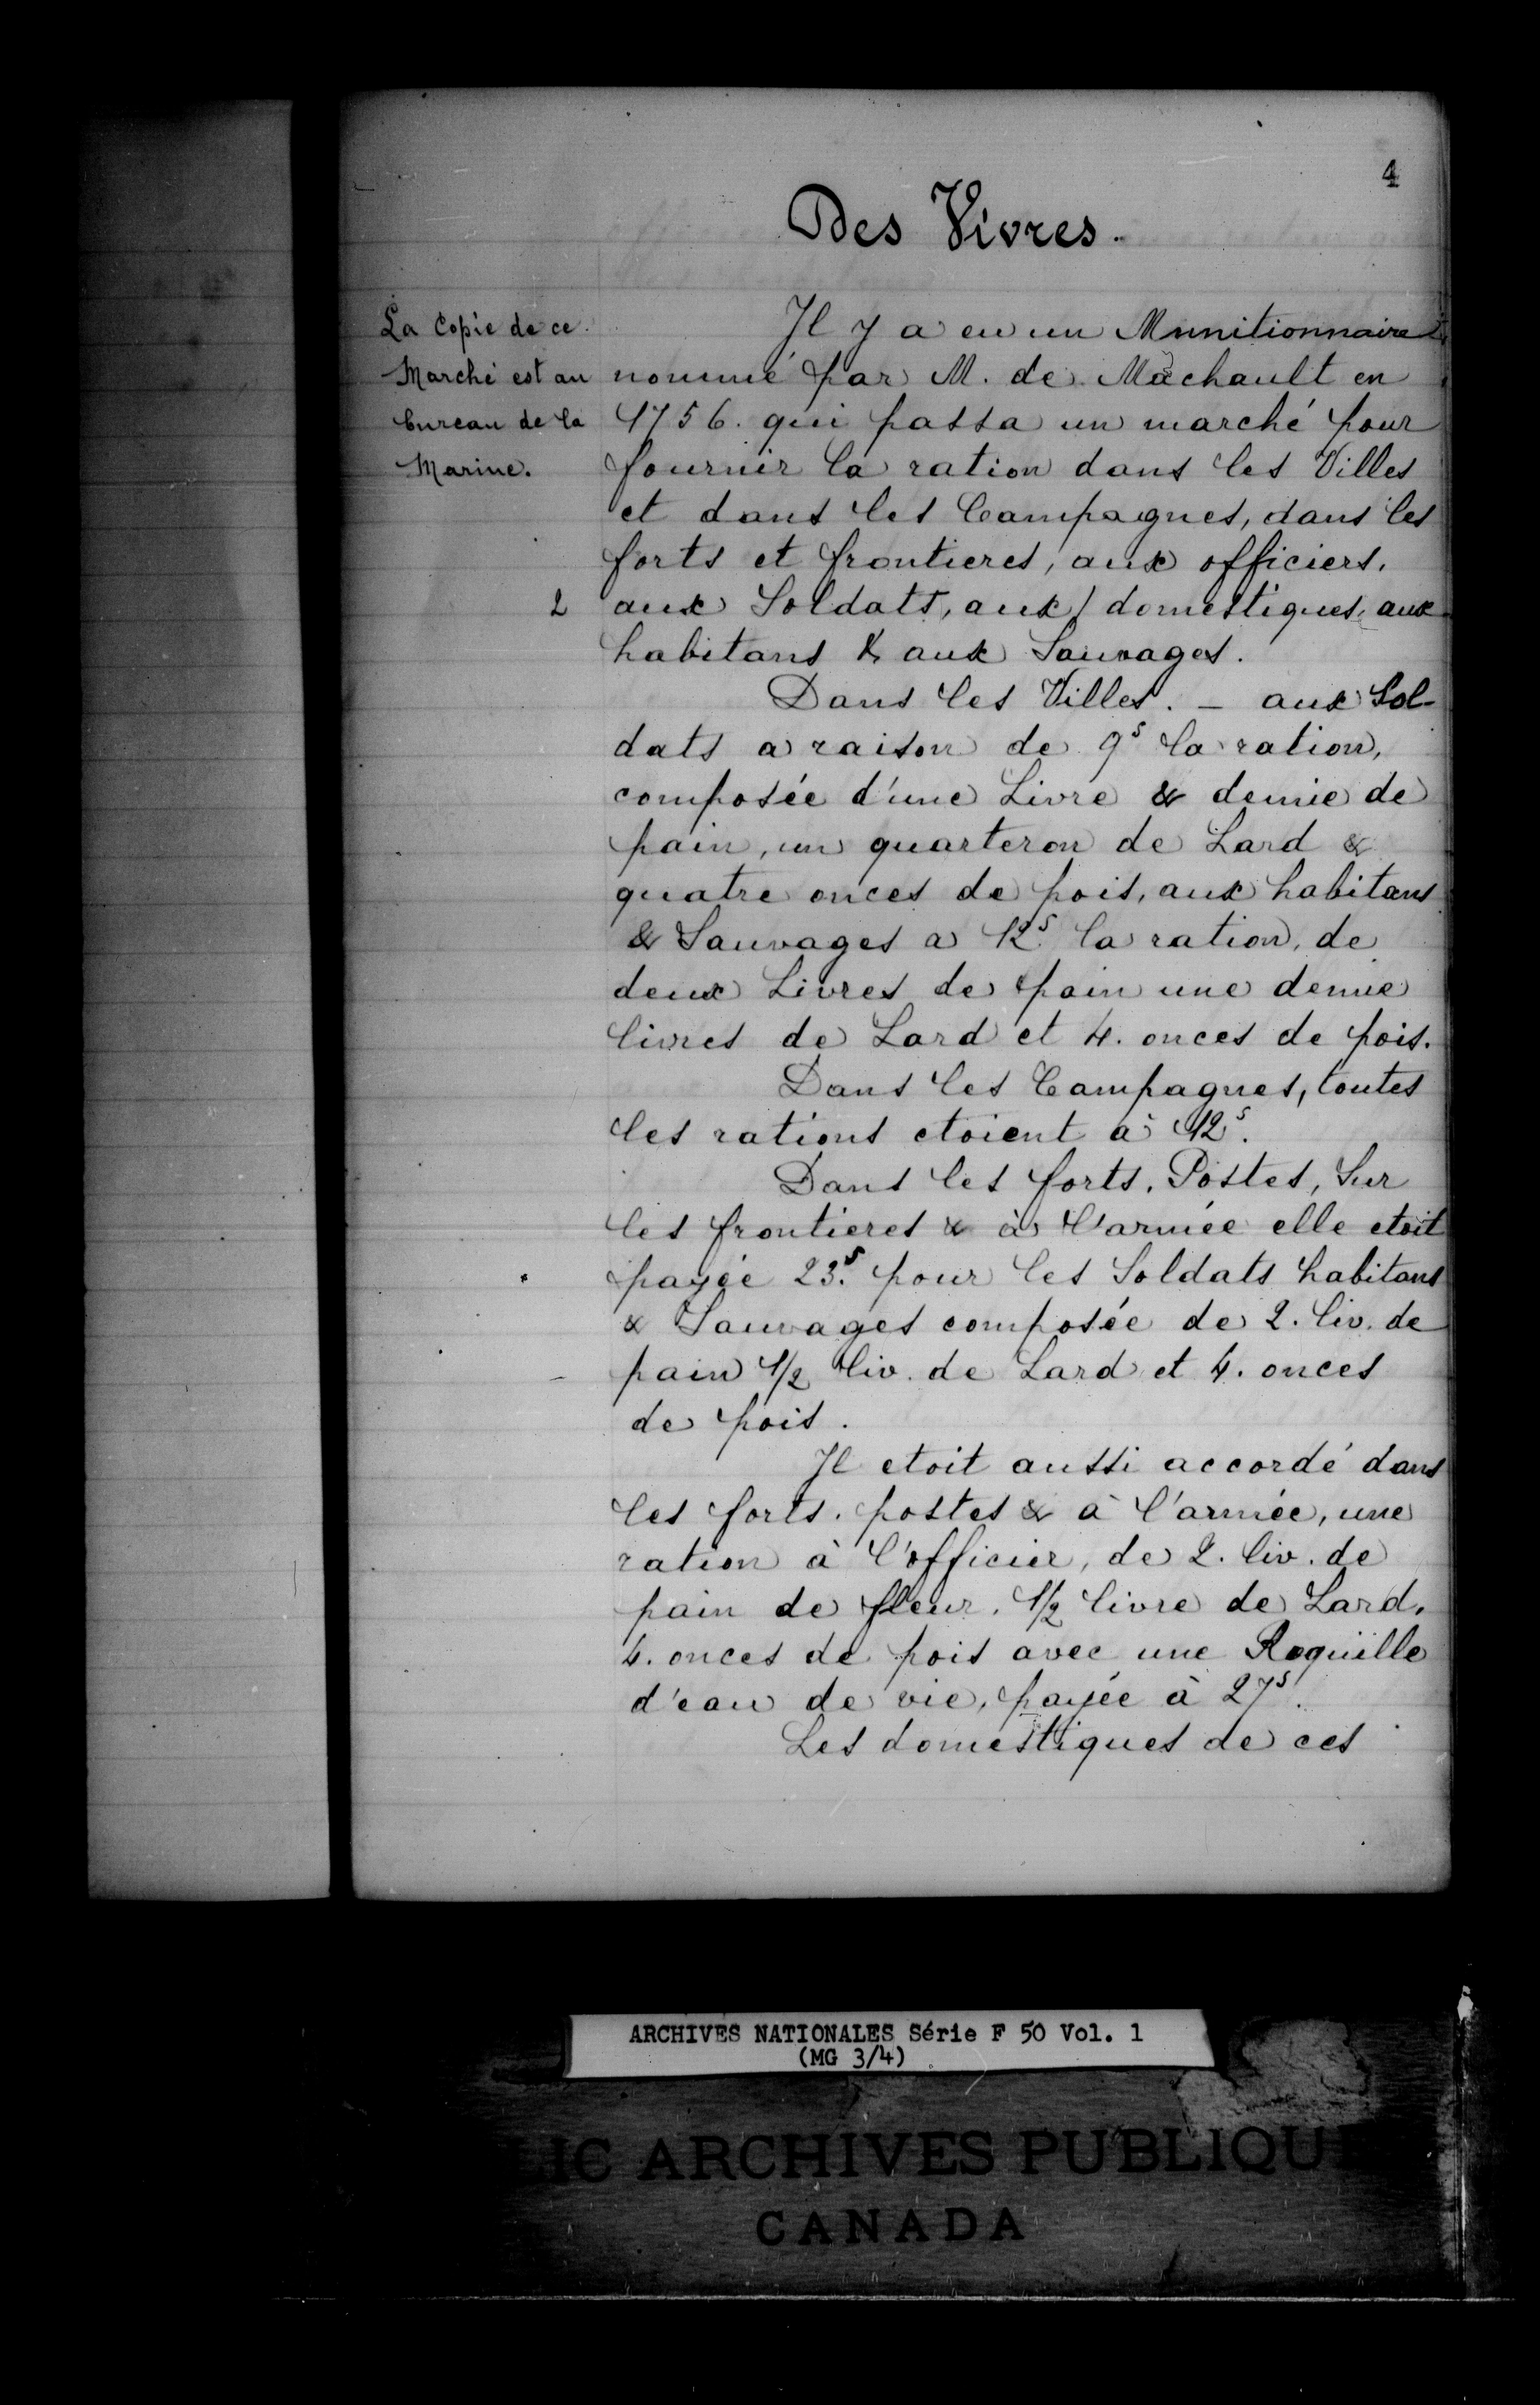 4
Des Vivres.
La Copie de ce
Marché est au
bureau de la
Marine.
Il y a eu un Munitionnaire
nommé par M. de Machault en
1756. qui passa un marché pour
fournir la ration dans les Villes
et dans les Campagnes, dans les
forts et frontieres, aux officiers,
2
aux Soldats, aux / domestiques, aux
habitans & aux Sauvages.
Dans les Villes. — aux Sol-
dats a raison de 9s la ration,
composée d'une Livre & demie de
pain, un quarteron de Lard &
quatre onces de pois, aux habitans
& Sauvages a 12s. la ration, de
deux Livres de pain une demie
livres de Lard et 4. onces de pois.
Dans les Campagnes, toutes
les rations etoient à 12s.
Dans les forts, Postes, Sur
les frontieres & à l'armée elle etoit
payée 23.s pour les Soldats habitans
& Sauvages composée de 2. liv. de
pain 1/2 liv. de Lard et 4. onces
de pois.
Il etoit aussi accordé dans
les forts, postes & à l'armée, une
ration à l'officier, de 2. liv. de
pain de fleur, 1/2 livre de Lard,
4. onces de pois avec une Roquille
d'eau de vie, payée à 27s.
Les domestiques de ces
ARCHIVES NATIONALES Série F 50 Vol. 1
(MG 3/4)
LIC ARCHIVES PUBLIQUE
CANADA